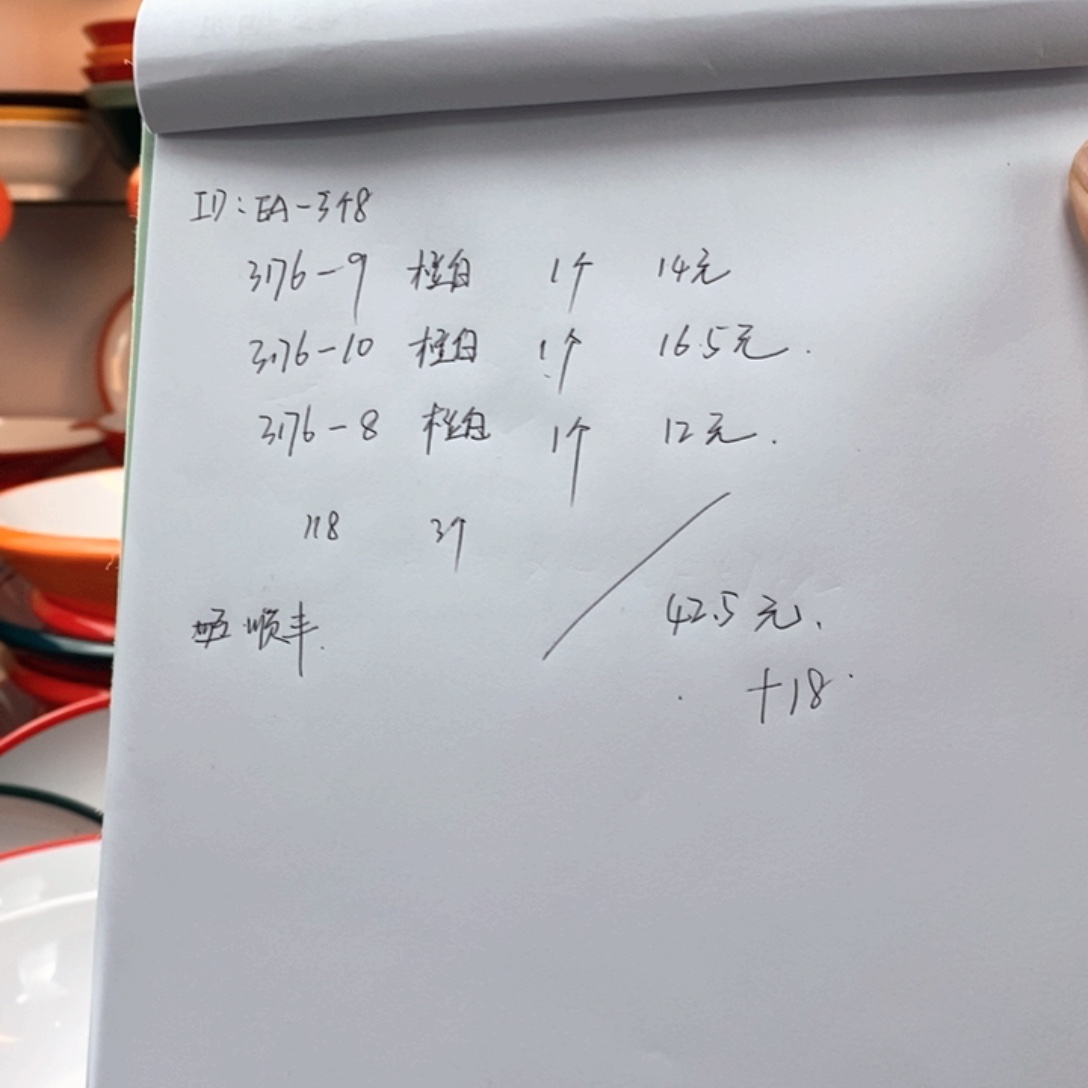 ID:EA-348
3176-9 橙白 1个 14元
3176-10 橙白 1个 16.5元.
3176-8 橙白 1个 12元.
118 3个
顺丰.
42.5元.
+18